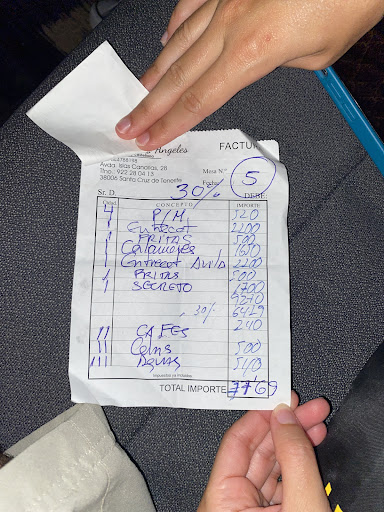 Angeles
FACTU
Avda. Islas Canarias, 28
Tfno.: 922 28 04 13
38006 Santa Cruz de Tenerife
Mesa N.º 5
Fecha
Sr. D. 30% DEBE
Cantd. CONCEPTO IMPORTE
4 P/M 520
1 Entrecot 2200
1 FRITAS 500
1 Calamares
1 Entrecot Avila 2200
1 FRITAS 500
1 SECRETO 1700
9270
30% 6429
11 CAFES 240
11 500
1111 Aguas 540
TOTAL IMPORTE 77'69